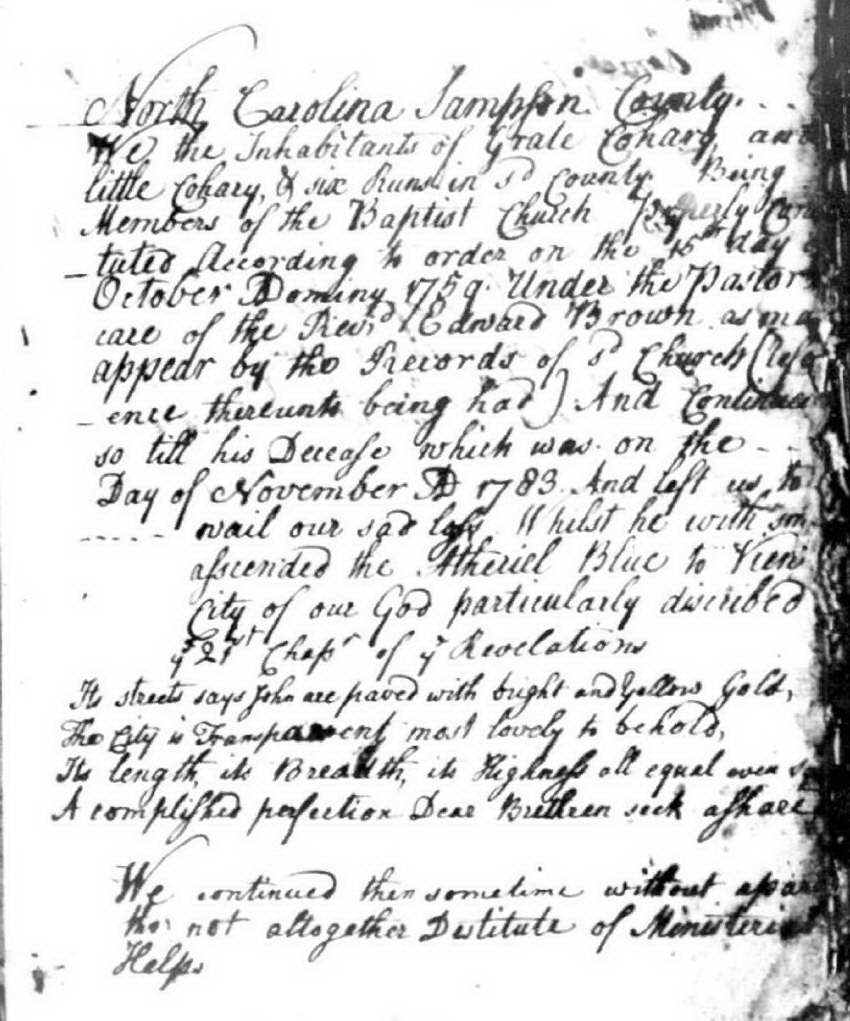 North Carolina Sampson County. - -
We the Inhabitants of Grate Cohary, and
little Cohary, & six Runs in sd County. Being
Members of the Baptist Church
tuted According to order on the 15th day
October Dominy 1759. Under the Pastor
care of the Revrd Edward Brown as ma
appear by the Records of sd Church (
ence thereunto being had) And Continued
so till his Decease which was on the - -
Day of November AD 1783. And left us to
wail our sad loss. Whilst he with
ascended the Atheriel Blue to View
City of our God particularly discribed
ye 21st Chapr of ye Revelations
Its streets says John are paved with bright and Yellow Gold,
The City is Transparent most lovely to behold,
Its length, its Breadth, its Highness all equal even
A complished perfection Dear Brethren seek a share
We continued then sometime without
tho' not altogether Destitute of Ministerial
Helps